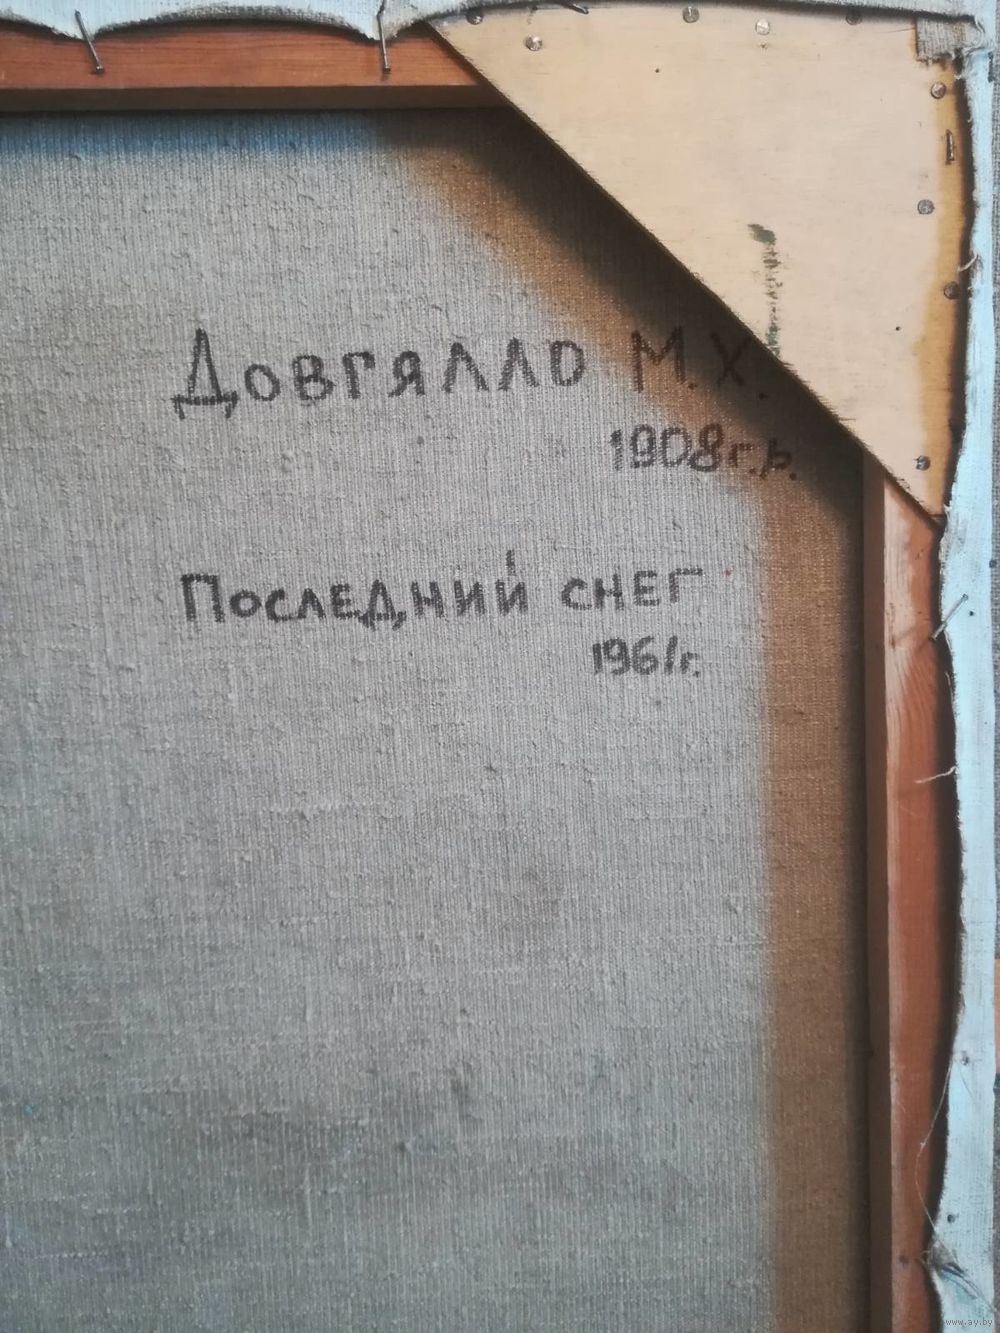 Довгялло М.Х.
1908г.р.
Последний снег
1961г.
www.ay.by